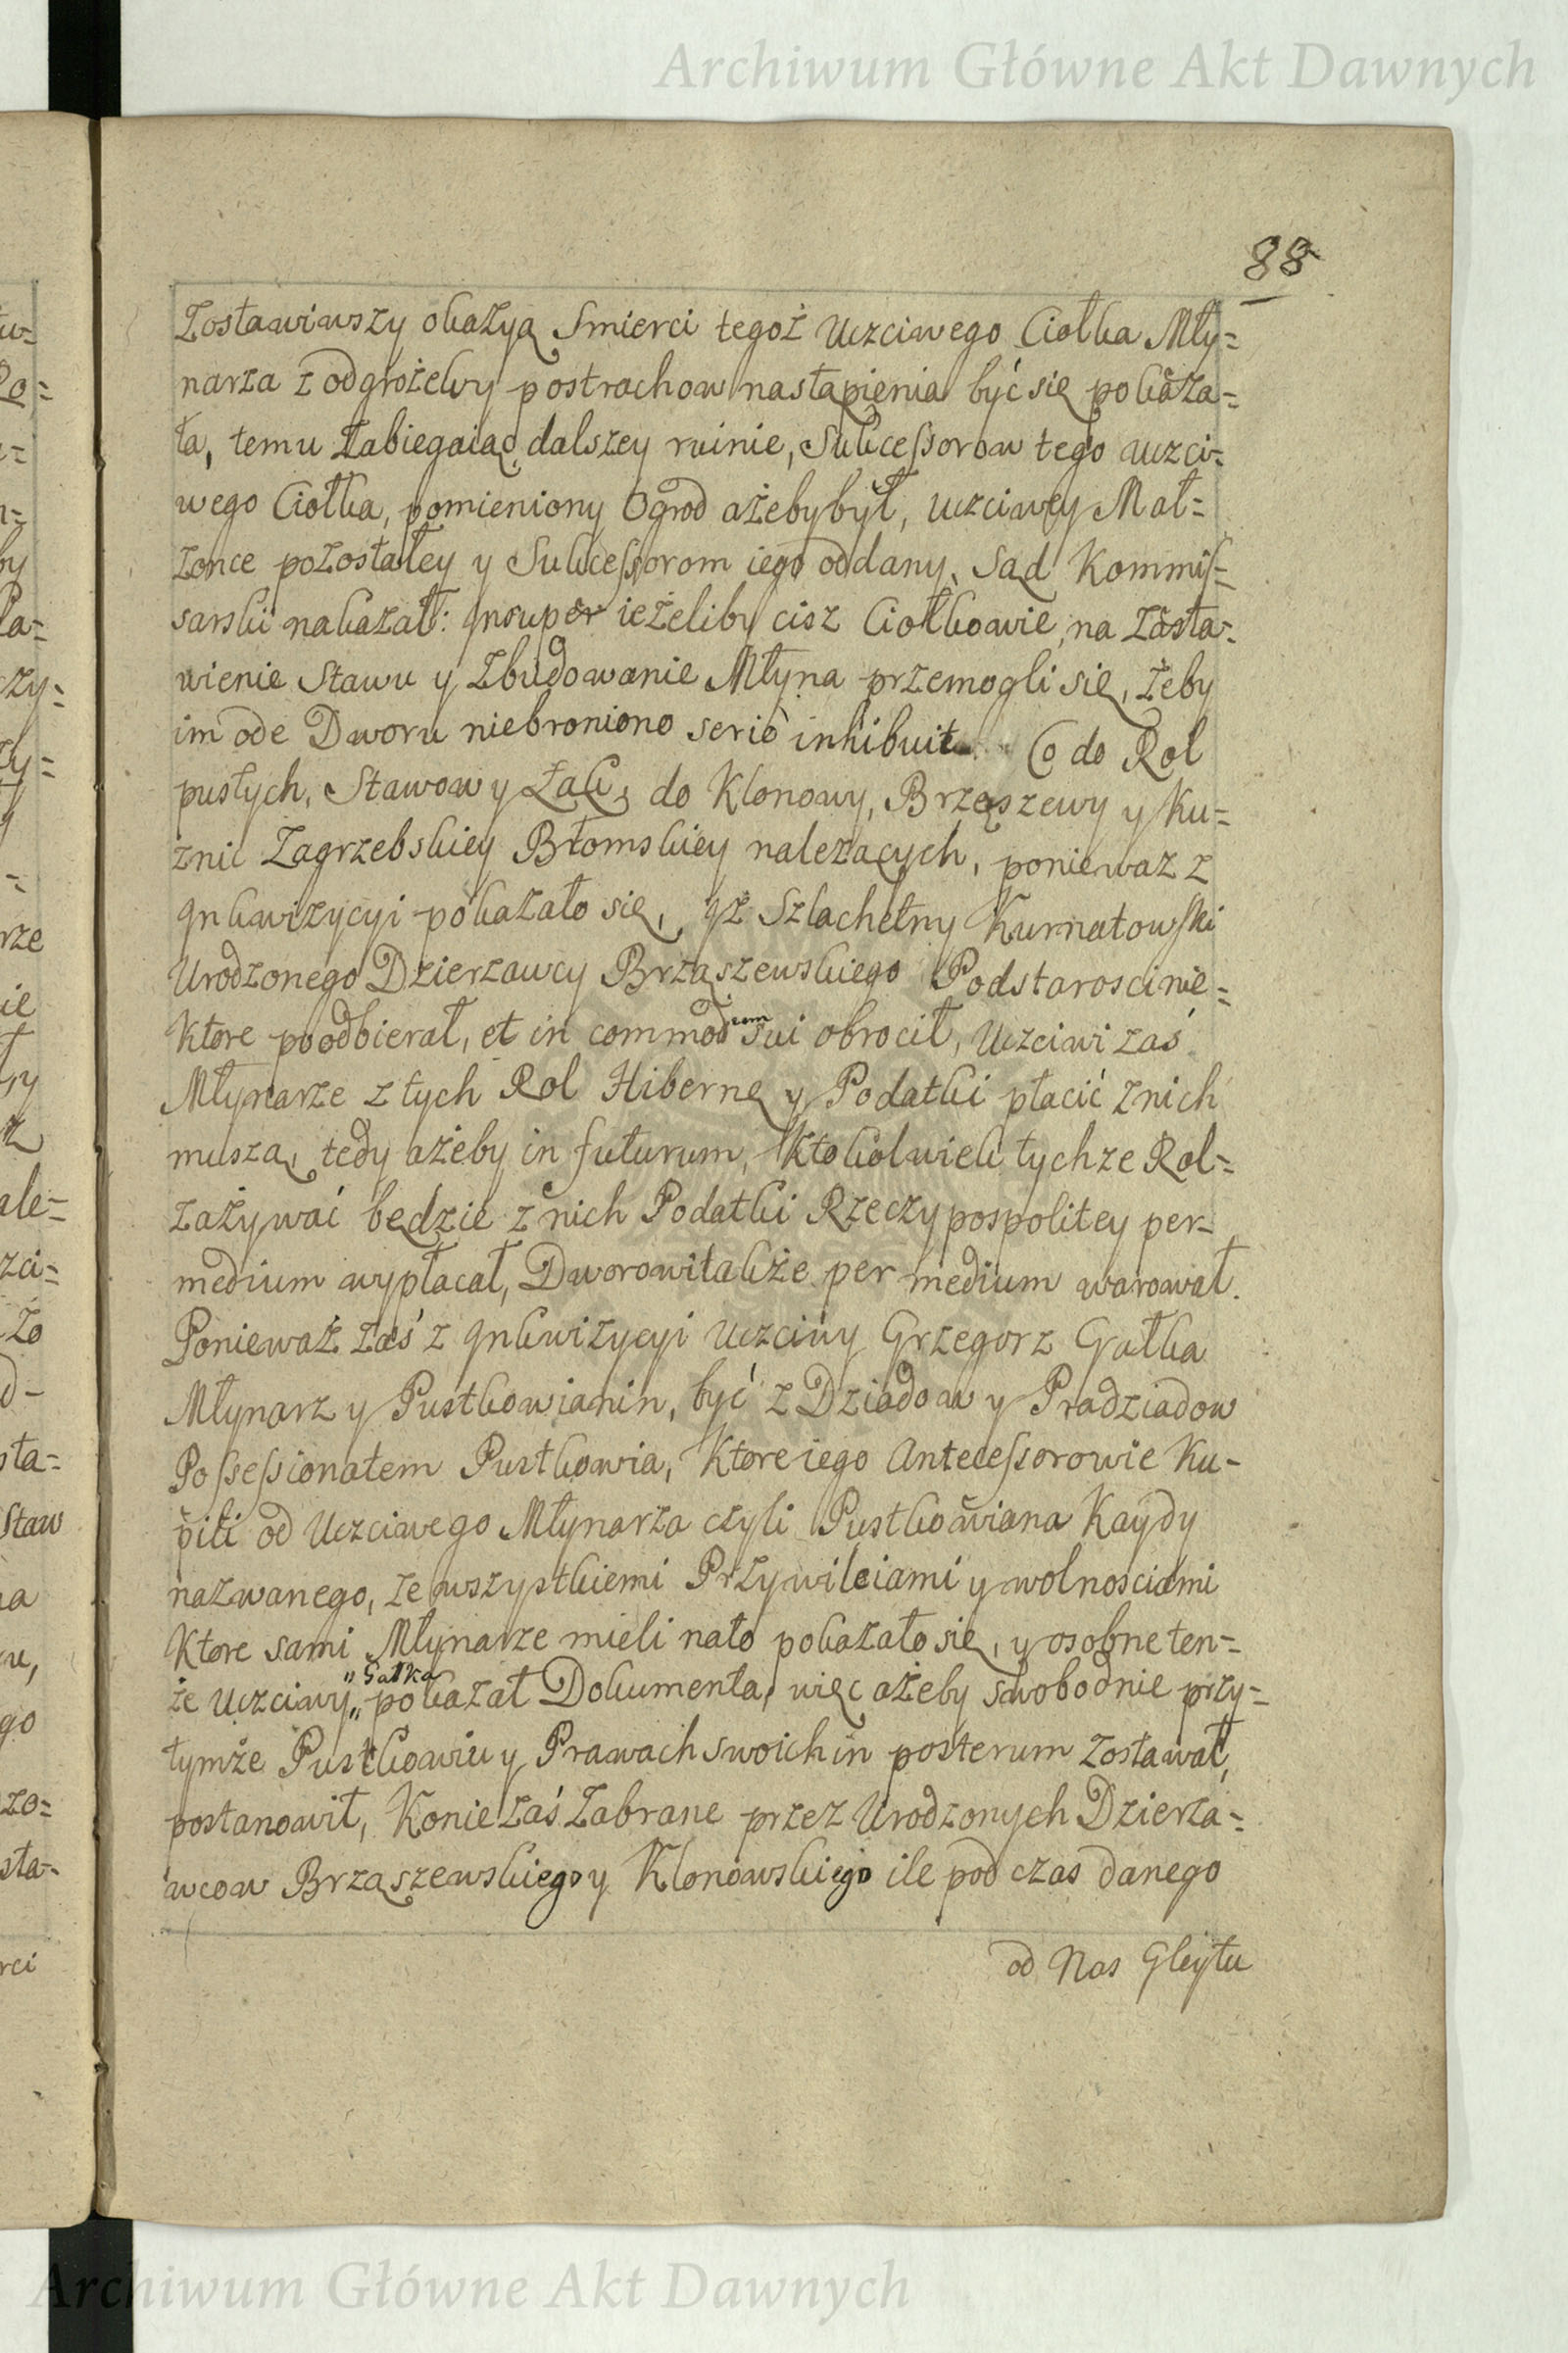 Archiwum Główne Akt Dawnych
88
Zostawiwszy okazyą Smierci tegoż Uczciwego Ciołka Mły=
narza z odgrożelwy postrachow nastąpienia być się pokaza=
ła, temu Zabiegaiąc dalszey ruinie, Sukcessorow tego uczci=
wego Ciołka, pomieniony Ogrod ażeby był, uczciwey Mał=
zonce pozostałey y Sukcessorom iego oddany, Sąd Kommis=
sarski nakazał: Insuper ieżeliby cisz Ciołkowie, na Zasta=
wienie Stawu y Zbudowanie Młyna przemogli się, żeby
im ode Dworu niebroniono serio inhibuit. Co do Rol
pustych, Stawow y Łąk, do Klonowy, Brząszewy y Ku=
znic Zagrzebskiey Błomskiey nalezących, poniewaz z
Inkwizycyi pokazało się, iż Szlachetny Kurnatowski
Urodzonego Dzierzawcy Brząszewskiego Podstarosci nie=
ktore poodbierał, et in commodum Sui obrocił, Uczciwi zaś
Młynarze z tych Rol Hibernę y Podatki płacić z nich
muszą, tedy ażeby in futurum, ktokolwiek tychze Rol=
zażywać będzie z nich Podatki Rzeczypospolitey per=
medium wypłacał, Dworowi także per medium warował.
Ponieważ zaś z Inkwizycyi Uczciwy Grzegorz Gałka
Młynarz y Pustkowianin, być z Dziadow y Pradziadow
Possessionatem Pustkowia, ktore iego Antecessorowie ku=
pili od Uczciwego Młynarza czyli Pustkowiana Kaydy
nazwanego, ze wszystkiemi Przywileiami y wolnosciami
ktore sami Młynarze mieli nato pokazało się, y osobne ten=
„Gałka
że Uczciwy „ pokazał Dokumenta, więc ażeby swobodnie przy=
tymże Pustkowiu y Prawach swoich in posterum zostawał,
postanowił, Konie zaś Zabrane przez Urodzonych Dzierża=
wcow Brząszewskiego y Klonowskiego ile pod czas danego
od Nas Gleytu
Archiwum Główne Akt Dawnych